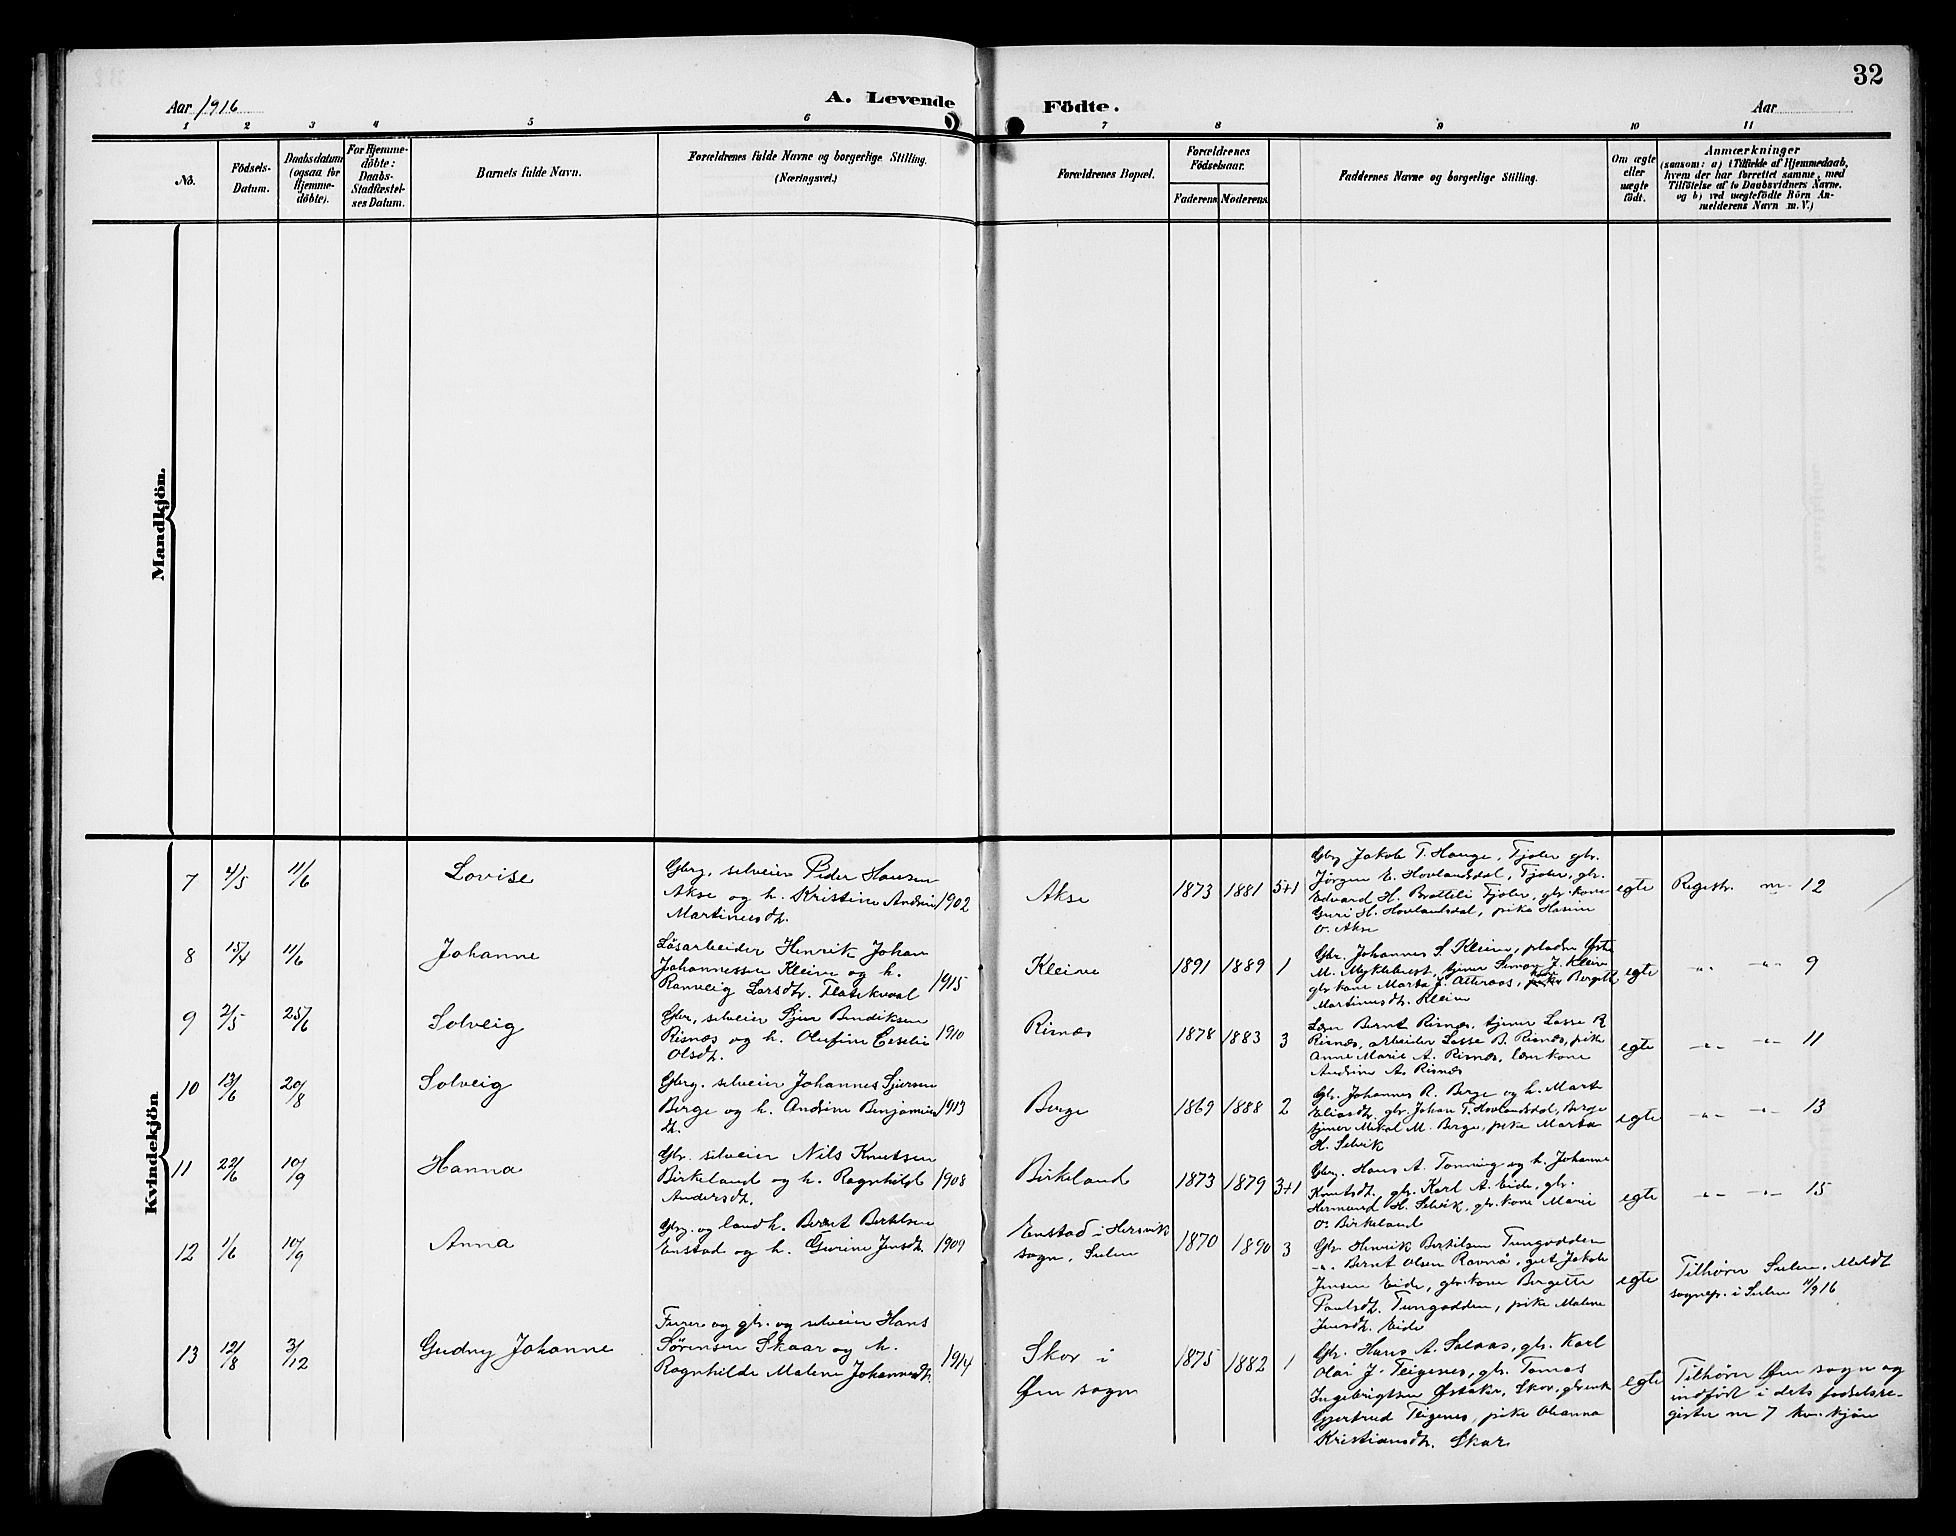 32
Aar 1916
A. Levende
Födte.
Aar
1 2 3 4 5 6 7 8 9 10 11
No.
Födsels-
Datum.
Daabsdatum
(ogsaa for
Hjemme-
döbte).
For Hjemme-
döbte:
Daabs-
Stadfæstel-
ses Datum.
Barnets fulde Navn.
Forældrenes fulde Navne og borgerlige Stilling.
(Næringsvei.)
Forældrenes Bopæl.
Forældrenes
Födselsaar.
Faderens
Moderens.
Faddernes Navne og borgerlige Stilling.
Om ægte
eller
uægte
födt.
Anmærkninger
(saasom: a) i Tilfælde af Hjemmedaab,
hvem der har forrettet samme, med
Tilföielse af to Daabsvidners Navne.
og b) ved uægtefödte Börn An-
melderens Navn m. V.)
Mandkjön.
Kvindekjön
7 4/5 11/6 Lovise
Gbrg. selveier Peder Hansen
Akse og h. Kristine Andrine 1902
Martinusdt.
Akse 1873 1881 5+1
Gbrg Jakob T. Hauge, Tjoler gbr.
Jörgen E. Hovlandsdal, Tjoler, gbr.
Edvard H. Brattli Tjoler, gbr. kone
Guri H. Hovlandsdal, pike Hasine
O. Akse
egte Registr. nr 12
8 15/4 11/6 Johanne
Løsarbeider Henrik Johan
Johannessen Kleive og h. 1915
Ranveig Larsdtr. Flatekval
Kleive 1891 1889 1
Gbr. Johannes S. Kleive, pladsm
M. Myklebust, tjener Simon J. Kleive
gbr kone Marta J. Atteraas, kone Bergitte
Martinusdt. Kleive
egte -"- -"- 9
9 2/5 25/6 Solveig
Gbr, selveier Sjur Bendiksen 1910
Risnæs og h. Olufine Eeselie
Olsdt.
Risnæs 1878 1883 3
Læm Bernt Risnæs, tjener Lasse R
Risnæs, arbeider Lasse B. Risnæs, pike
Anne Marie A. Risnæs, læm kone
Andrine A. Risnæs
egte -"- -"- 11
10 13/6 20/8 Solveig
Gbrg. selveier Johannes Sjursen
Berge og h. Andrine Benjamins 1913
dt.
Berge 1869 1888 2
Gbr. Johannes R. Berge og h. Marte
Eliasdt, gbr. Johan T. Hovlandsdal, Berge
tjener Mikal M. Berge, pike Marta
H. Selvik
egte -"- -"- 13
11 22/6 10/9 Hanna
Gbr. selveier Nils Knutsen
Birkeland og h. Ragnhild 1908
Andersdt.
Birkeland 1873 1879 3+1
Gbrg. Hans A. Tonning og h. Johanne
Knutsdt, gbr. Karl A. Eide, gbr.
Hermund H. Selvik, gbr. kone Marie
O. Birkeland
egte -"- -"- 15
12 1/6 10/9 Anna
Gbrg. og landh. Bernt Bertilsen
Enstad og h. Gurine Jensdt. 1909
Enstad i Hersvik
sogn, Sulen 1870 1890 3
Gbr Henrik Bertilsen Tungodden
-"- Bernt Olsen Ravnö, gut Jakob
Jensen Eide, gbr. kone Bergitte
Paulsdt. Tungodden, pike Malene
Jensdt. Eide
egte
Tilhører Sulen, Meldt
sognepr. i Sulen 11/9 16
13 12/8 3/12 Gudny Johanne
Furer og gbr. og selveier Hans
Sörensen Skaar og h. 1914
Ragnhilde Malene Johannesdt.
Skor i
Øen sogn 1875 1882 1
Gbr. Hans A. Solaas, gbr. Karl
Olai J. Teigenes, gbr. Tomas
Ingebrigtsen Østaker, Skor, gbr enk
Gjertrud Teigenes, pike Oleanna
Kristiansdt. Skor
egte
Tilhører Øen sogn og
indfört i dets fødselsre-
gister nr 7 kv. kjön